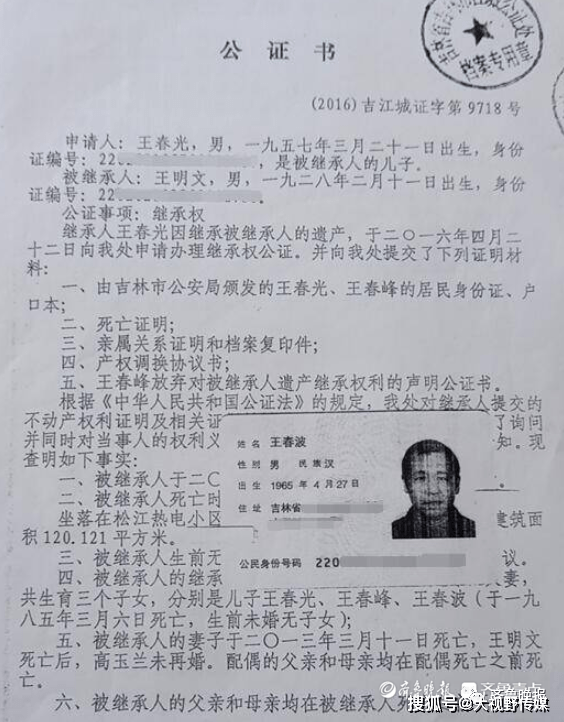 公证书
吉林省吉林市
公证处
档案专用章
(2016)吉江城证字第9718号
申请人:王春光,男,一九五七年三月二十一日出生,身份
证编号:220 ,是被继承人的儿子。
被继承人:王明文,男,一九二八年二月十一日出生,身份
证编号:220 。
公证事项:继承权
继承人王春光因继承被继承人的遗产,于二〇一六年四月二
十二日向我处申请办理继承权公证。并向我处提交了下列证明材
料:
一、由吉林市公安局颁发的王春光、王春峰的居民身份证、户
口本;
二、死亡证明;
三、亲属关系证明和档案复印件;
四、产权调换协议书;
五、王春峰放弃对被继承人遗产继承权利的声明公证书。
根据《中华人民共和国公证法》的规定,我处对继承人提交的
不动产权利证明及相关证 了询问
并同时对当事人的权利义 知。现
查明如下事实:
一、被继承人于二〇 。
二、被继承人死亡时
坐落在松江热电小区 建筑面
积120.121平方米。
三、被继承人生前无 议。
四、被继承人的继承 妻,
共生育三个子女,分别是儿子王春光、王春峰、王春波(于一九
八五年三月六日死亡,生前未婚无子女);
五、被继承人的妻子于二〇一三年三月十一日死亡,王明文
死亡后,高玉兰未再婚。配偶的父亲和母亲均在配偶死亡之前死
亡。
六、被继承人的父亲和母亲均在被继承人死
姓名 王春波
性别 男 民族 汉
出生 1965 年 4 月 27 日
住址 吉林省
公民身份号码 220
齐鲁晚报
齐鲁壹点
搜狐号@大视野传媒